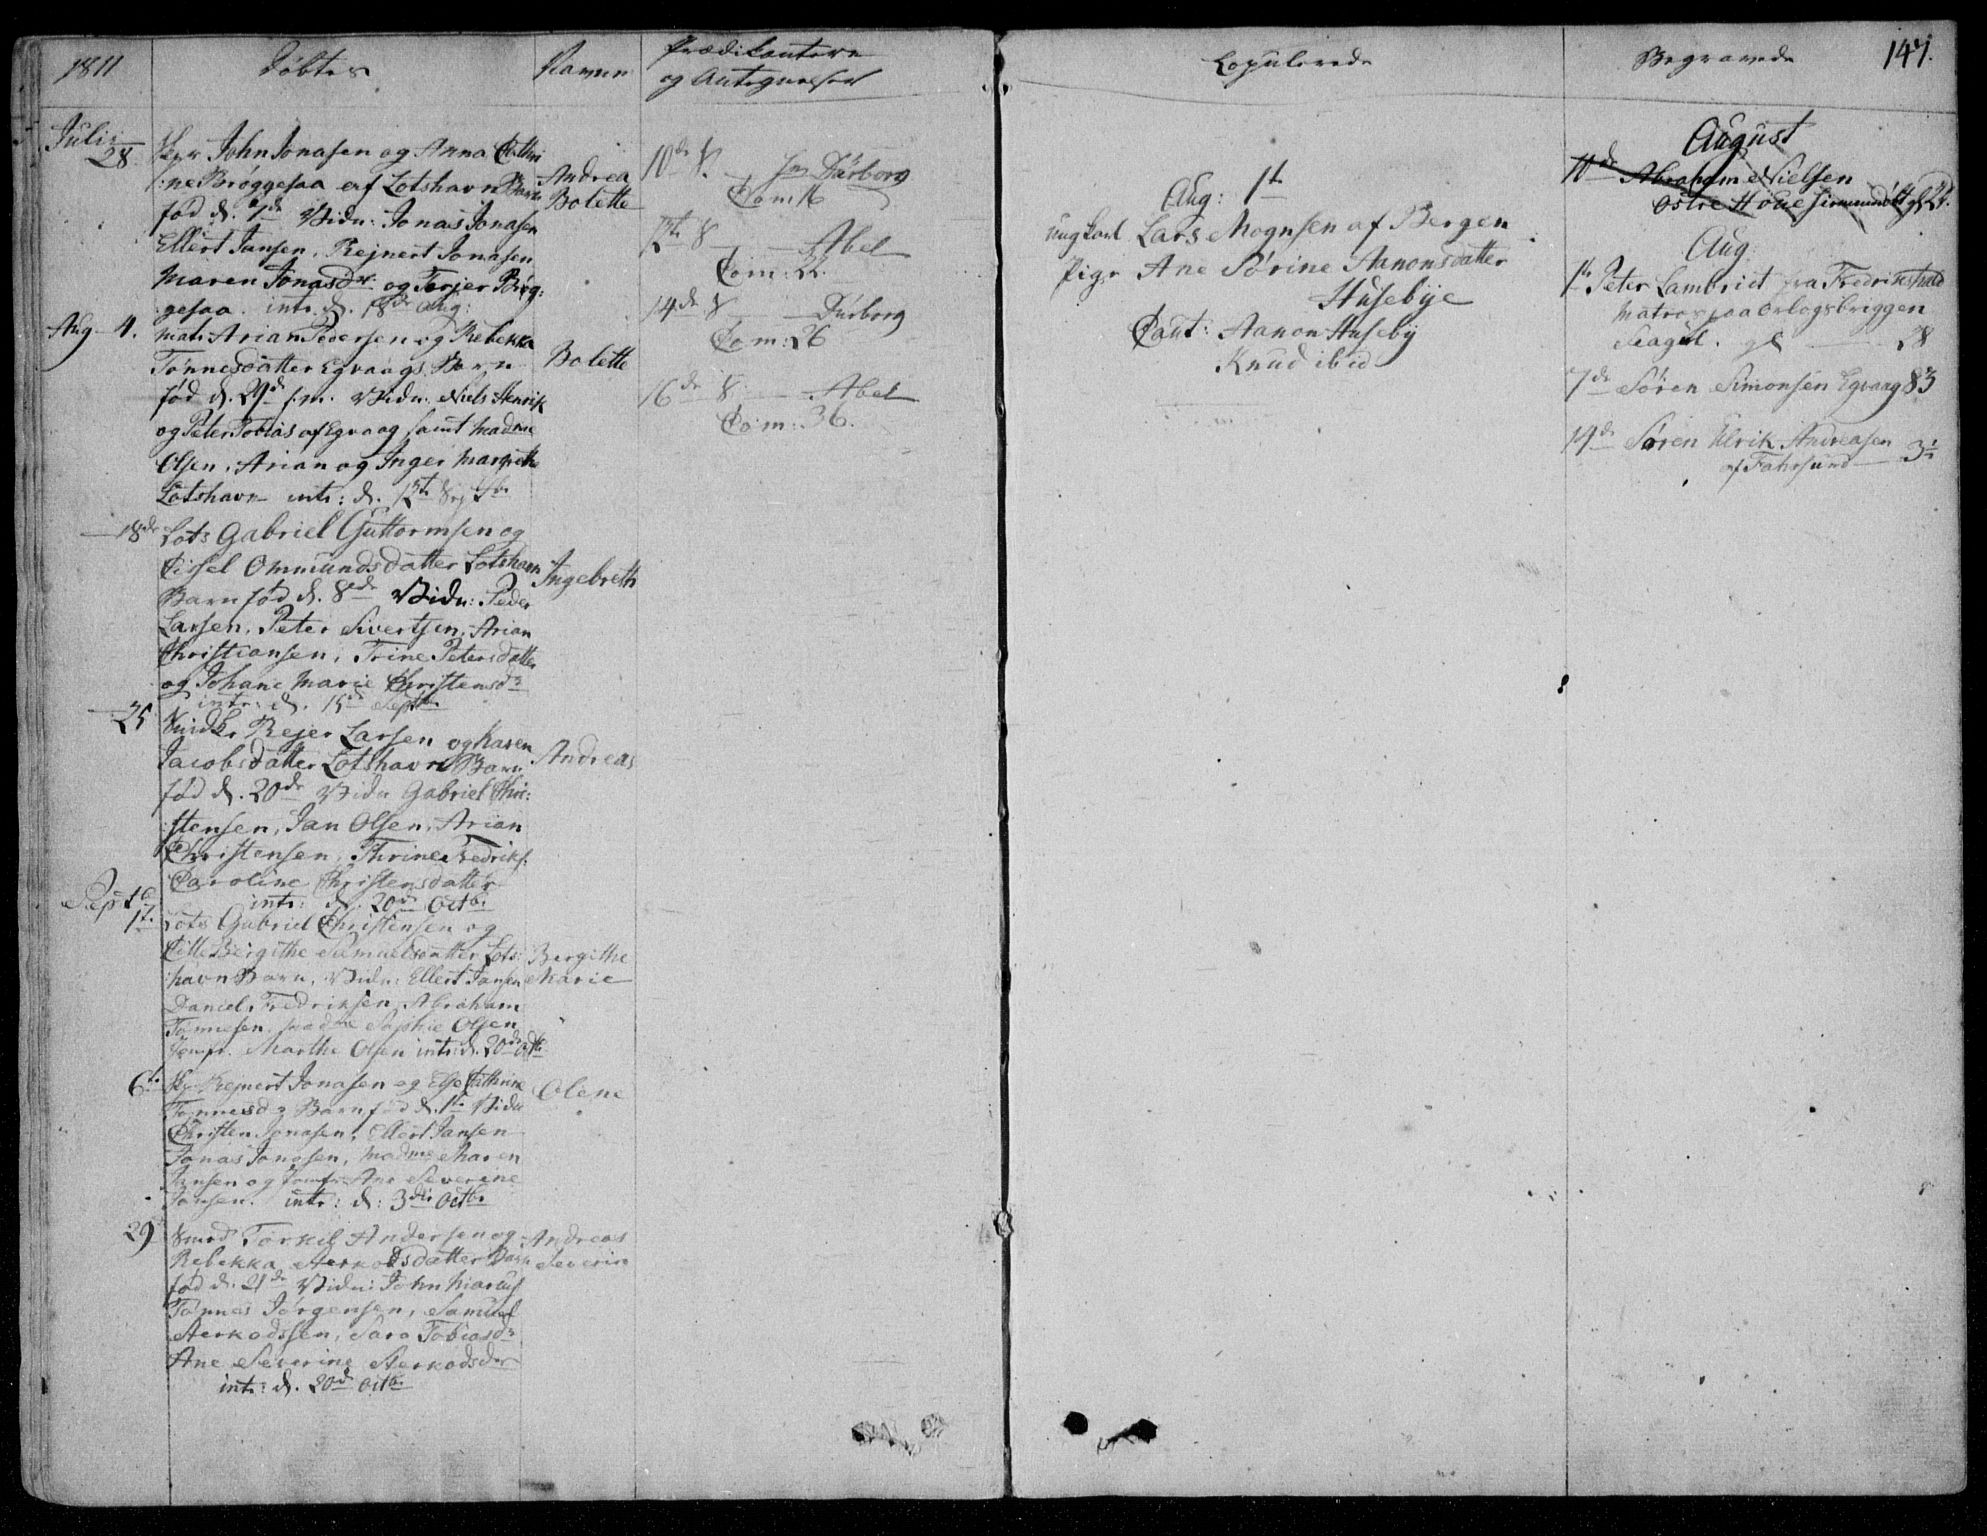 1811
Døbtes
Navne
Prædikantere
og Antegnelser
Julii
28
Skpr John Jonasen og Anna Cathri
:ne Brøggesaa af Lotshavn Barn
fød d. 7de Vidn: Jonas Jonasen
Ellert Jansen, Rejnert Jonasen
Maren Jonasdr og Torjer Brøg:
gesaa. intr. d. 18de Aug:
Andrea
Bolette
Aug 4.
Mats Arian Pedersen og Rebekka
Tønnesdatter Egvaags Barn
fød d. 29de f.m. Vidn. Niels Henrik
og Peter Tobias af Egvaag samt Madme
Olsen, Arian og Inger Margrethe
Lotshavn intr: d. 15te
Bolette
18de
Lots Gabriel Guttormsen og
Sissel Ommundsdatter Lotshavn
Barn fød d. 8de Vidn: Peder
Larsen, Peter Sivertsen, Arian
Christiansen, Trine Petersdatter
og Johane Marie Christensdr
intr: d. 15de Septbr
Ingebreth
25
Rejer Larsen og Karen
Jacobsdatter Lotshavn Barn
fød d. 20de Vidn Gabriel Chri:
stensen, Jan Olsen, Arian
Christensen, Thrine Fredriks.
Caroline Christensdatter
intr: d. 20de Octbr
Andreas
Septb
1t.
Lots Gabriel Christensen og
Bergithe Samuelsdatter Lots:
havn Barn, Vidn: Ellert Jansen
Daniel Fredriksen, Abraham
Tønnesen, Madme Sophie Olsen
Jomfr. Marthe Olsen intr: d. 20de Octb
Bergithe
Marie
6te
Skp Rejnert Jonasen og Else Cathrine
Tønnesdr Barn, fød d. 1te Vidn
Christen Jonasen, Ellert Jansen
Jonas Jonasen, Madme Maren
Jansen og Jomfr: Ane Severine
Jansen. intr: d: 3die Octbr
Olene
29
Torkel Andersen og
Rebekka Aerkodsdatter Barn
fød d. 21de Vidn: John Marius
Tønnes Jørgensen, Samuel
Aerkodssen, Sara Tobiasdr
Ane Severine Aerkodsdr
intr: d. 20de Octbr
Andreas
Severin
10de 8. Hr Dürborg
Com 16
12te 8 Abel
Com: 22.
14de 8 Dürborg
Com: 26
16de 8 Abel
Com: 36.
Copulerede
Aug: 1t
ungkarl Lars Mognsen af Bergen
Pige Ane Sørine Aanonsdatter
Husebye
Caut: Aanon Huseby
Knud ibid
Begravede
147.
August
10de Abraham Nielsen
Østre Houe
Aug
1te Peter Lambriet fra Fredrikshald
Matros paa Orlogsbriggen
Seagul. gl 28
7de Søren Simonsen Egvaag 83
14de Søren Ulrik Andreasen
af Fahrsund